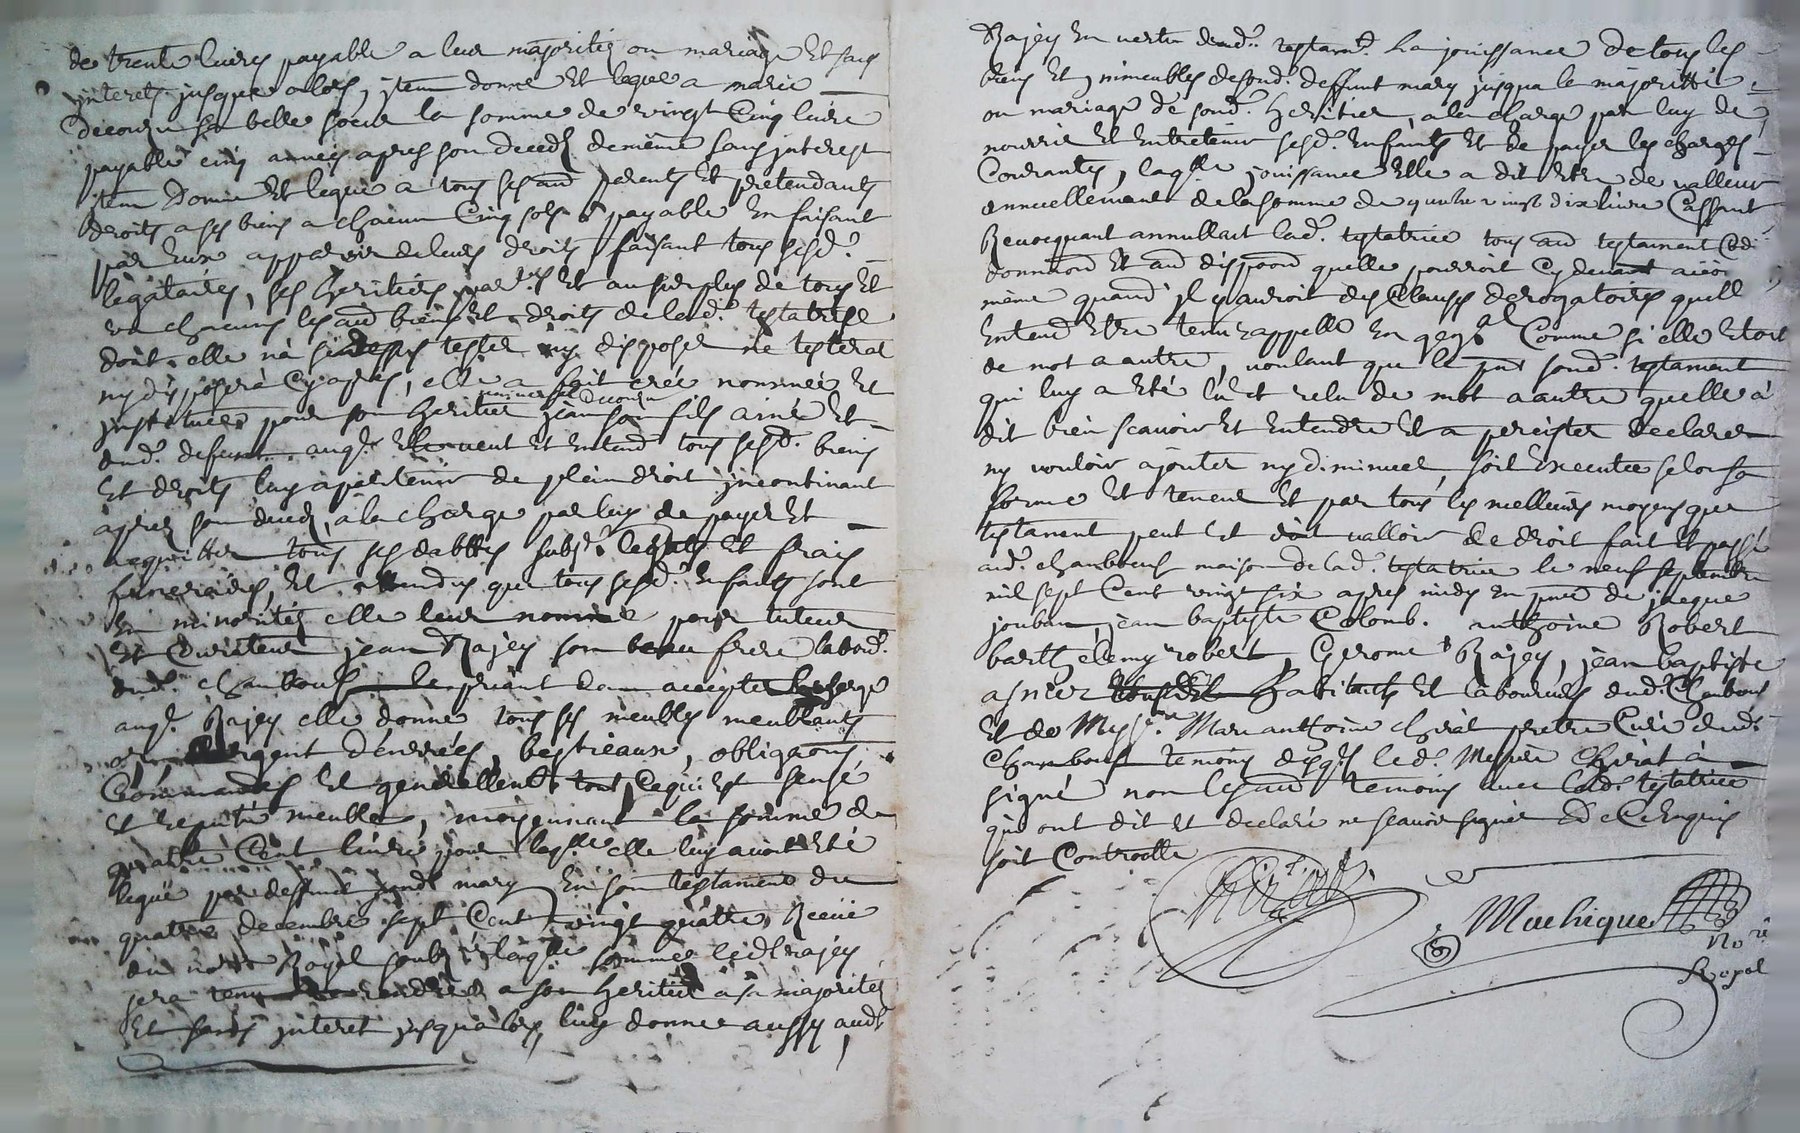 de trente livres payable a leur majorité ou mariage Et sans
interets jusques alors, jtem donne Et legue a marie
decouzu sa belle soeur la somme de vingt Cinq livre
payable cinq années apres son decedz de même sans jnterest
jtem Donne Et legue a tous ses au parents Et pretendants
droits a ses biens a chacun Cinq sols payable En faisant
par Eux apparoir de leurs droits faisant tous sesd.
legataires, ses heritiers par.ers Et au surplus de tous Et
un chacuns les au biens Et droits de lad. testatrice
dont elle n'a cy dessus testé ny disposé ne testerat
ny disposera Cy apres, elle a fait créé nommée Et
jnstituée pour son heritier universel jean decouzu son fils ainé Et
dud. defunt ang. Elle veut Et Entend tous sesd. biens
Et droits luy apartenir de plein droit jncontinant
apres son decedz, a la charge par luy de payer Et
acquitter tous ses dabttes subs. legats Et frais
funeraires, Et attendus que tous sesd. Enfants sont
En minorités elle leur nomme pour tuteur
Et Curateur jean Rajey son beau frere labour.
dud. chambouf le priant d'en accepter la charge
auq. Rajey elle donne tous ses meubles meublants
or argent denrrées, bestieaux, obligaons
Commandes Et generallement tout Ce qui Est sensé
Et reputé meubles, moyennant la somme de
quattre Cent livres pour laqlle elle luy avoit Eté
legué par deffunt sond mary En son testament du
quattre decembre sept Cent vingt quattre Receü
du nore Royal soubz laqlle somme led. Rajey
sera tenu rendre a son heritier a sa majorités
Et sans jnteret jusqua lors, luy donne aussy aud
Rajey En vertu dud. testamt. La jouissance De tous les
biens Et jmmeubles de sond. deffunt mary jusqua la majoritté
ou mariage de sond. heritier, a la charge par luy de
nourrir Et Entretenir sesd. Enfants Et de payer les charges
Courantes, laqlle jouissance Elle a dit Etre de valleur
annuellement de la somme de quattre vingt dix livre Cassant
Revocquant annullant lad. testatrice tous au testament Codi
donnaon Et au dispoon quelle pourroit Cy devant avoir
même quand il y auroit des Clauses derogatoires quell
Entend Etre tenu rappellé En genal Comme si elle Etoit
de mot a autre, voulant que le pnt sond. testament
qui luy a Eté lû et relu de mot a autre quelle à
dit bien scavoir Et Entendre Et a percister declarer
ny vouloir ajouter ny diminuer, soit Executée selon sa
forme Et teneur Et par tous les meilleurs moyens que
testament peut Et doit valloir de droit fait Et passé
aud. chambouf maison de lad. testatrice le neuf septembre
mil sept Cent vingt six apres midy En pnce de jacque
jouban jean baptiste Colomb. anthoine Robert
barthelemy robert, Gerome Rajey, jean baptiste
asnier habitants Et laboureurs dud. Chambouf
Et de Messire Marc anthoine chirat prêtre Curé dud.
Chambouf temoins desqls led. Messire Chirat à
signé non les au temoins avec lad. testatrice
qui ont dit Et declaré ne scavoir signer De Ce Enquis
soit Controolle
Chirat
Machique
No.re
Royal